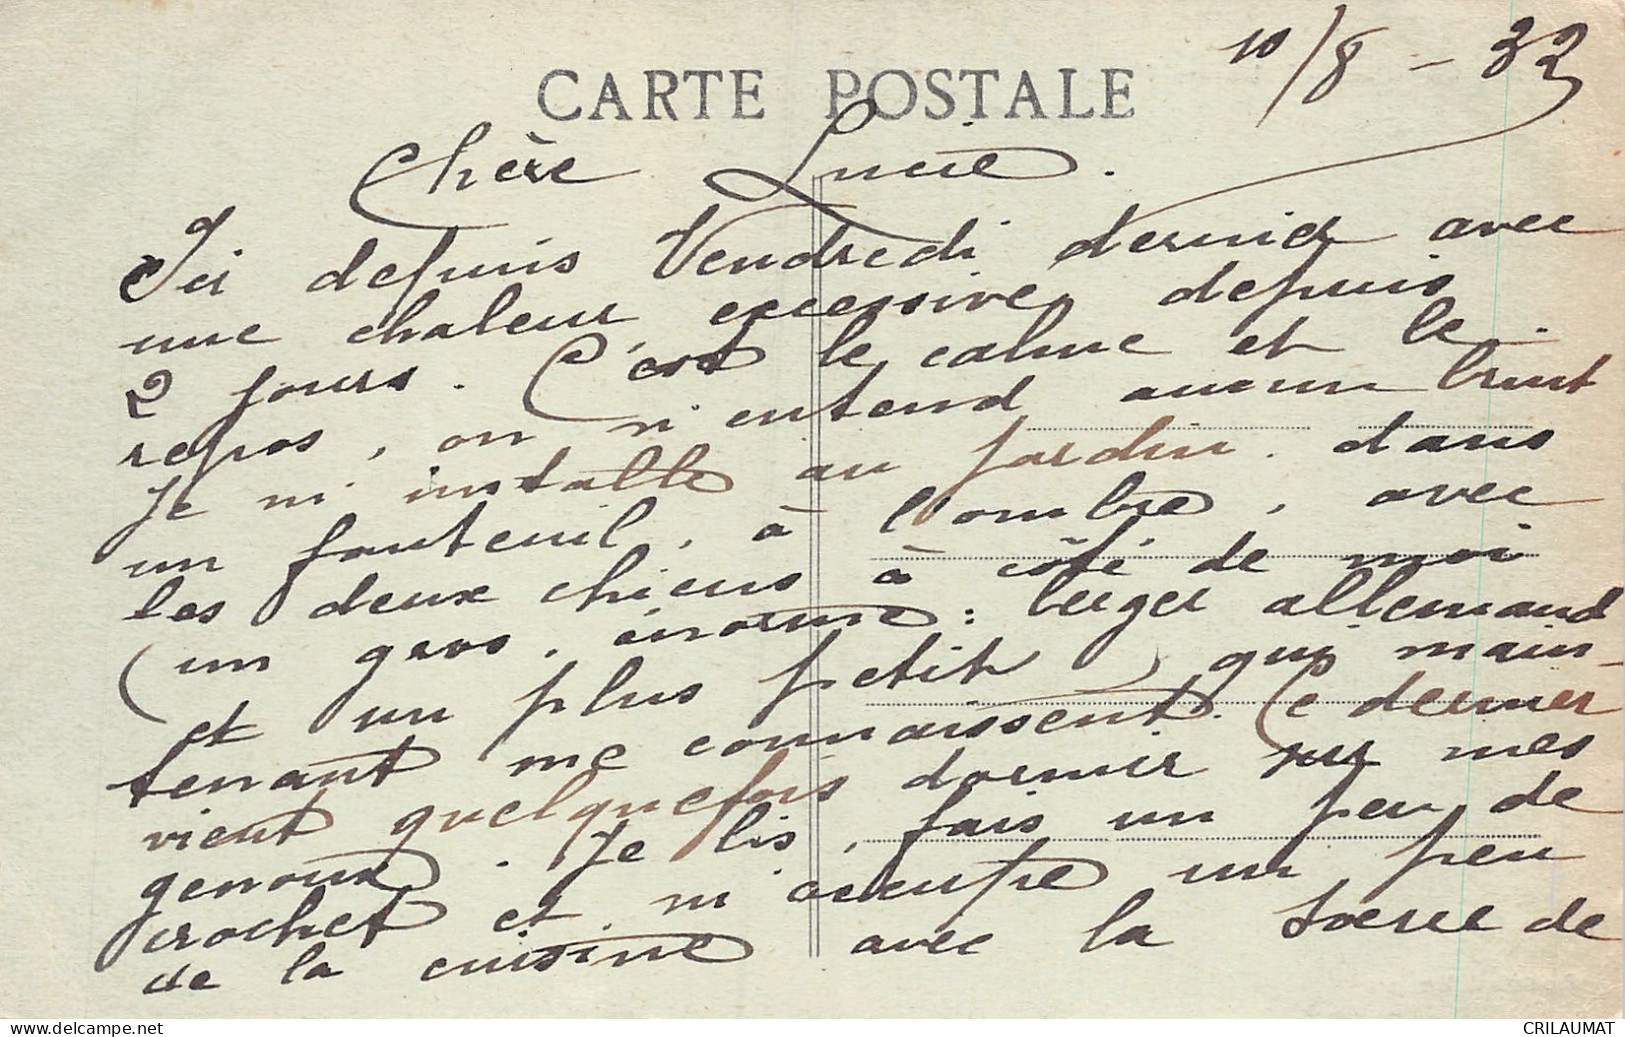 10/8 - 32
CARTE POSTALE
Chère Lucie.
Ici depuis Vendredi dernier avec
une chaleur excessive, depuis
2 jours. C'est le calme et le
repos, on n'entend aucun bruit.
Je m'installe au jardin. dans
un fauteuil, à l'ombre, avec
les deux chiens à côté de moi
(un gros, énorme: berger allemand
et un plus petit, qui main-
tenant me connaissent. Ce dernier
vient quelquefois dormir sur mes
genoux. Je lis, fais un peu de
crochet et m'occupe un peu
de la cuisine avec la soeur de
www.delcampe.net
CRILAUMAT